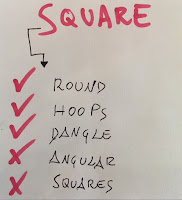 SQUARE
ROUND
HOOPS
DANGLE
ANGULAR
SQUARES